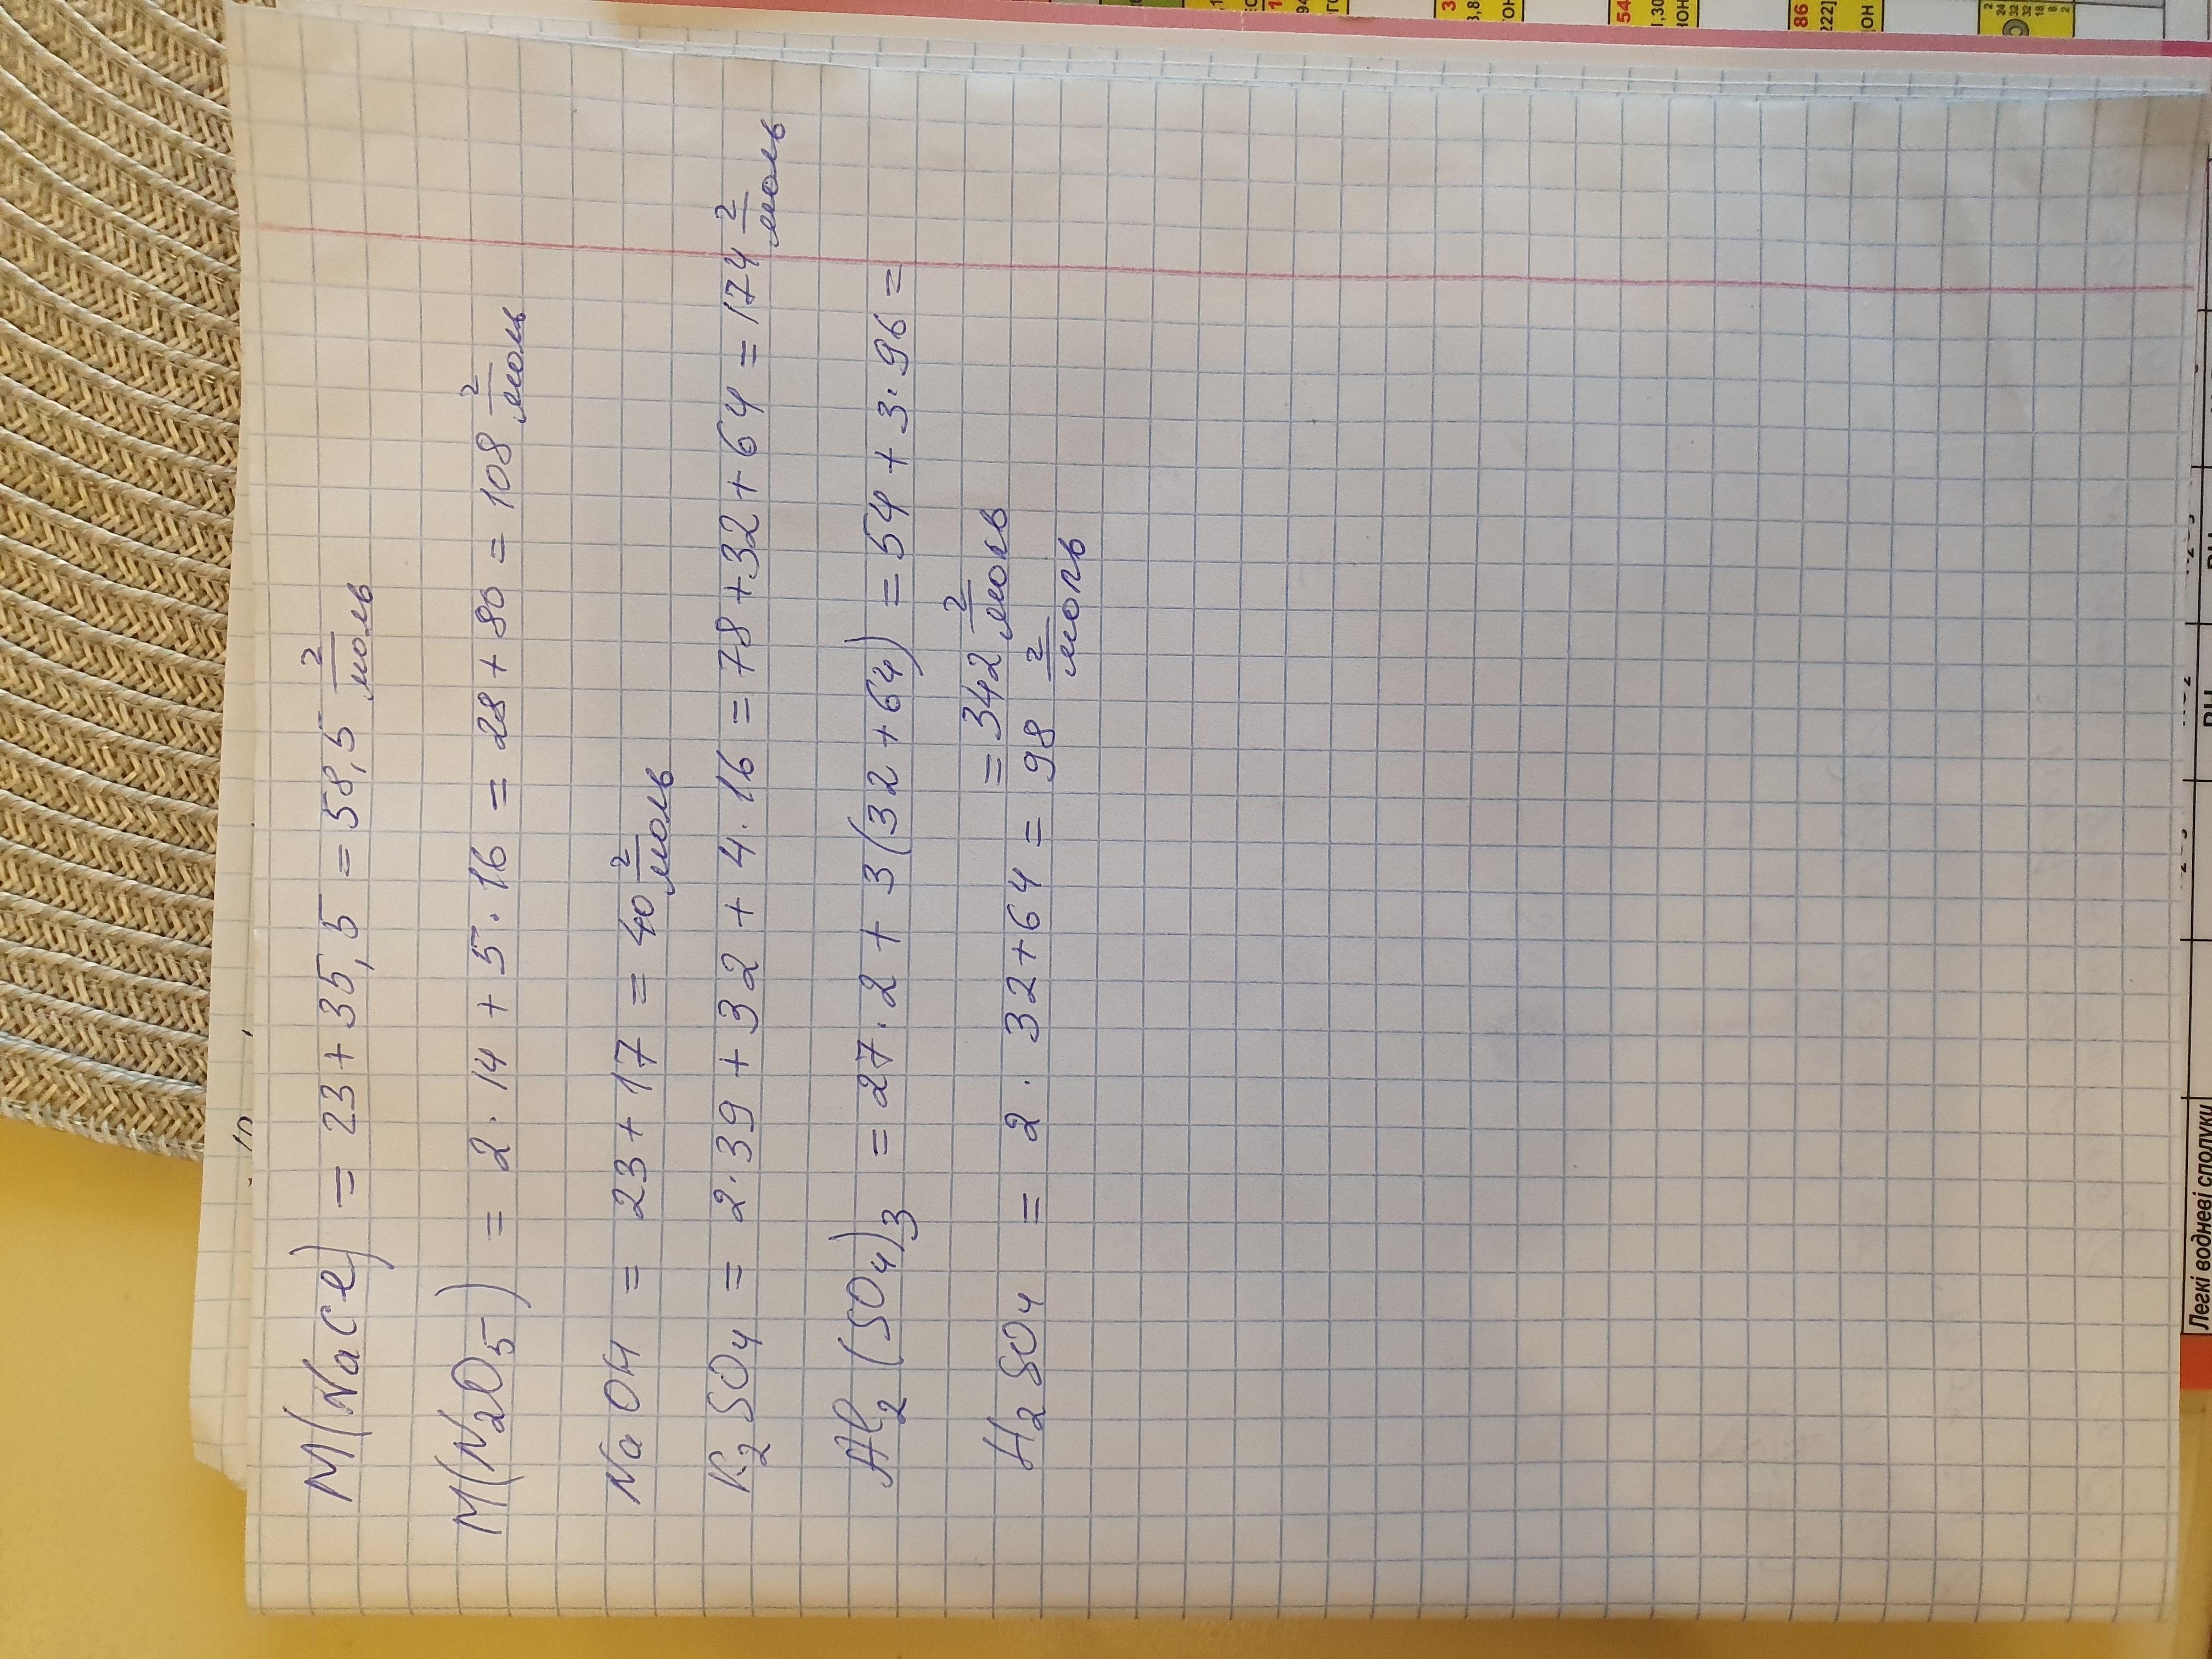 M(NaCl) = 23 + 35,5 = 58,5 г/моль
M(N₂O₅) = 2 · 14 + 5 · 16 = 28 + 80 = 108 г/моль
NaOH = 23 + 17 = 40 г/моль
K₂SO₄ = 2 · 39 + 32 + 4 · 16 = 78 + 32 + 64 = 174 г/моль
Al₂(SO₄)₃ = 27 · 2 + 3(32 + 64) = 54 + 3 · 96 =
= 342 г/моль
H₂SO₄ = 2 · 32 + 64 = 98 г/моль
Легкі водневі сполуки
54
86
222]